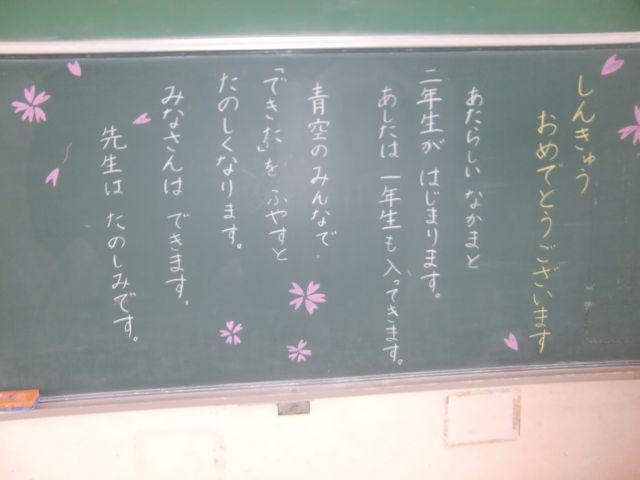 しんきゅう
おめでとうございます
あたらしい なかまと
二年生が はじまります。
あしたは 一年生も 入ってきます。
青空のみんなで
「できた」を ふやすと
たのしくなります。
みなさんは できます。
先生は たのしみです。